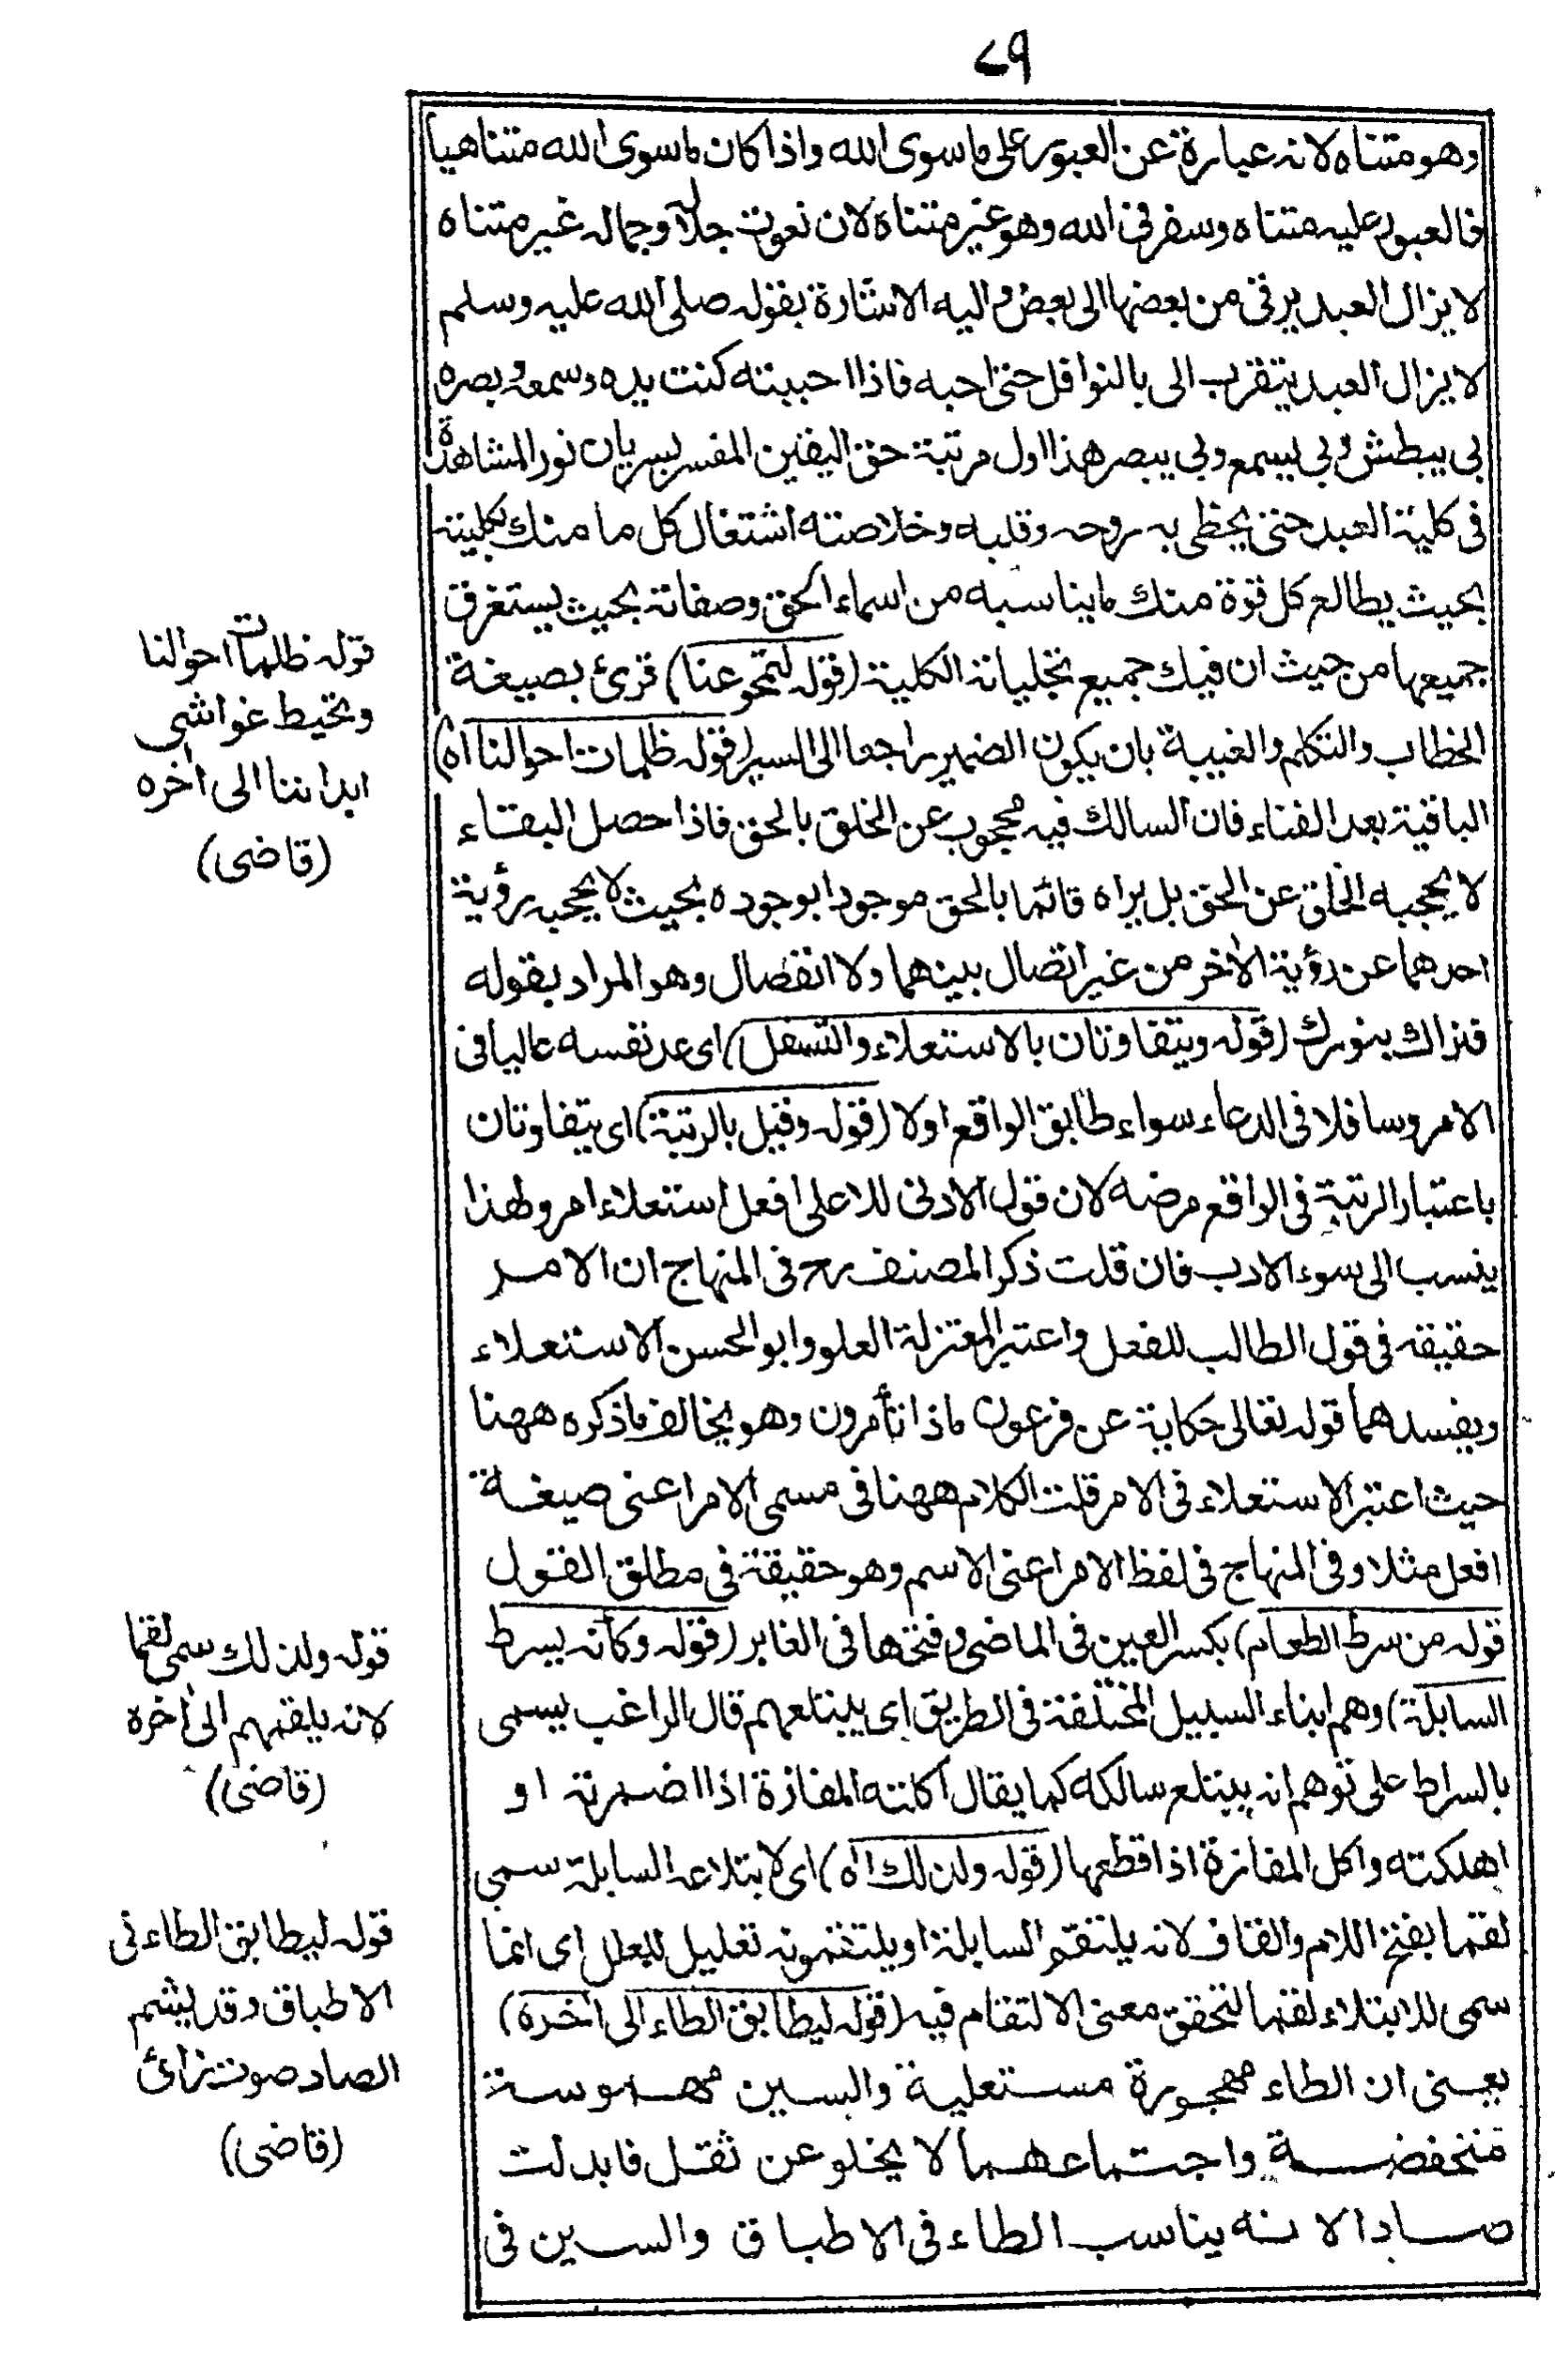 ٧٩
وهو متناه لانه عبارة عن العبور على ماسوى الله واذا كان ماسوى الله متناهيا
فالعبور عليه متناه وسفر فى الله وهو غير متناه لان نعوت جلاله وجماله غير متناه
لا يزال العبد يرقى من بعضها الى بعض واليه الاشارة بقوله صلى الله عليه وسلم
لا يزال العبد يتقرب الى بالنوافل حتى احبه فاذا احببته كنت يده وسمعه وبصره
بى يبطش وبى يسمع وبى يبصر هذا اول مرتبة حق اليقين المفسر بسريان نور المشاهدة
فى كلية العبد حتى يحظى به روحه وقلبه وخلاصته اشتغال كل ما منك بكليته
بحيث يطالع كل قوة منك مايناسبه من اسماء الحق وصفاته بحيث يستغرق
جميعها من حيث ان فيك جميع تجلياته الكلية (قوله لتمحو عنا) قرئ بصيغة
الخطاب والتكلم والغيبة بان يكون الضمير راجعا الى السير (قوله ظلمات احوالنا اه)
الباقية بعد الفناء فان السالك فيه محجوب عن الخلق بالحق فاذا حصل البقاء
لا يحجبه الخلق عن الحق بل يراه قائما بالحق موجودا بوجوده بحيث لا يحجبه رؤية
احدهما عن رؤية الاخر من غير اتصال بينهما ولا انفصال وهو المراد بقوله
فنراك بنورك (قوله ويتفاوتان بالاستعلاء والتسفل) اى عد نفسه عاليا فى
الامر وسافلا فى الدعاء سواء طابق الواقع اولا (قوله وقيل بالرتبة) اى يتفاوتان
باعتبار الرتبة فى الواقع مرضه لان قول الادنى للاعلى افعل استعلاء امر ولهذا
ينسب الى سوء الادب فان قلت ذكر المصنف رح فى المنهاج ان الامر
حقيقة فى قول الطالب للفعل واعتبر المعتزلة العلو وابو الحسن الاستعلاء
ويفسدهما قوله تعالى حكاية عن فرعون ماذا تأمرون وهو يخالف ماذكره ههنا
حيث اعتبر الاستعلاء فى الامر قلت الكلام ههنا فى مسمى الامر اعنى صيغة
افعل مثلا وفى المنهاج فى لفظ الامر اعنى الاسم وهو حقيقة فى مطلق القول
قوله من سرط الطعام) بكسر العين فى الماضى وفتحها فى الغابر (قوله وكأنه يسرط
السابلة) وهم ابناء السبيل المختلفة فى الطريق اى يبتلعهم قال الراغب يسمى
بالسراط على توهم انه يبتلع سالكه كما يقال اكلته المفازة اذا اضمرته او
اهلكته واكل المفازة اذا قطعها (قوله ولذلك اه) اى لابتلاعه السابلة سمى
لقما بفتح اللام والقاف لانه يلتقم السابلة او يلتقمونه تعليل للعلل اى انما
سمى للابتلاء لقما لتحقق معنى الالتقام فيه (قوله ليطابق الطاء الى اخره)
يعنى ان الطاء مجهورة مستعلية والسين مهموسة
منخفضة واجتماعهما لا يخلو عن ثقل فابدلت
صادا لانه يناسب الطاء فى الاطباق والسين فى
قوله ظلمات احوالنا
وتحيط غواشى
ابداننا الى اخره
(قاضى)
قوله ولذلك سمى لقما
لانه يلقمهم الى اخره
(قاضى)
قوله ليطابق الطاء فى
الاطباق وقد يشم
الصاد صوت زائ
(قاضى)